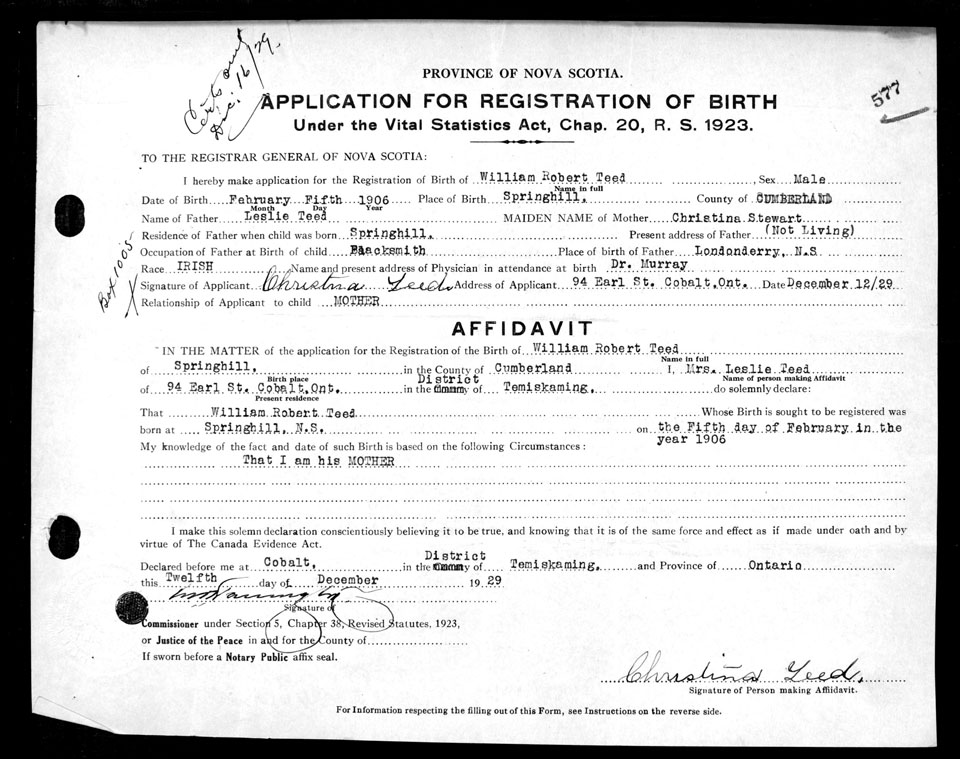 Certs out
Dec. 16/29.
577
PROVINCE OF NOVA SCOTIA.
APPLICATION FOR REGISTRATION OF BIRTH
Under the Vital Statistics Act, Chap. 20, R. S. 1923.
TO THE REGISTRAR GENERAL OF NOVA SCOTIA:
I hereby make application for the Registration of Birth of William Robert Teed, Sex Male
Name in full
Date of Birth February Fifth 1906 Place of Birth Springhill, County of CUMBERLAND
Month Day Year
Name of Father Leslie Teed MAIDEN NAME of Mother Christina Stewart
Residence of Father when child was born Springhill. Present address of Father (Not Living)
Occupation of Father at Birth of child Blacksmith Place of birth of Father Londonderry, N.S
Race IRISH Name and present address of Physician in attendance at birth Dr. Murray
Box 1005
X Signature of Applicant Christina Teed Address of Applicant 94 Earl St. Cobalt, Ont. Date December 12/29
Relationship of Applicant to child MOTHER
AFFIDAVIT
IN THE MATTER of the application for the Registration of the Birth of William Robert Teed
Name in full
of Springhill, in the County of Cumberland I, Mrs. Leslie Teed
Birth place Name of person making Affidavit
of 94 Earl St. Cobalt, Ont. in the District of Temiskaming, do solemnly declare:
Present residence
That William Robert Teed Whose Birth is sought to be registered was
born at Springhill, N.S. on the Fifth day of February in the
year 1906
My knowledge of the fact and date of such Birth is based on the following Circumstances:
That I am his MOTHER
I make this solemn declaration conscientiously believing it to be true, and knowing that it is of the same force and effect as if made under oath and by
virtue of The Canada Evidence Act.
Declared before me at Cobalt, in the District of Temiskaming, and Province of Ontario
this Twelfth day of December 19 29
Signature of
Commissioner under Section 5, Chapter 38, Revised Statutes, 1923,
or Justice of the Peace in and for the County of
If sworn before a Notary Public affix seal.
Christina Teed.
Signature of Person making Affidavit.
For Information respecting the filling out of this Form, see Instructions on the reverse side.